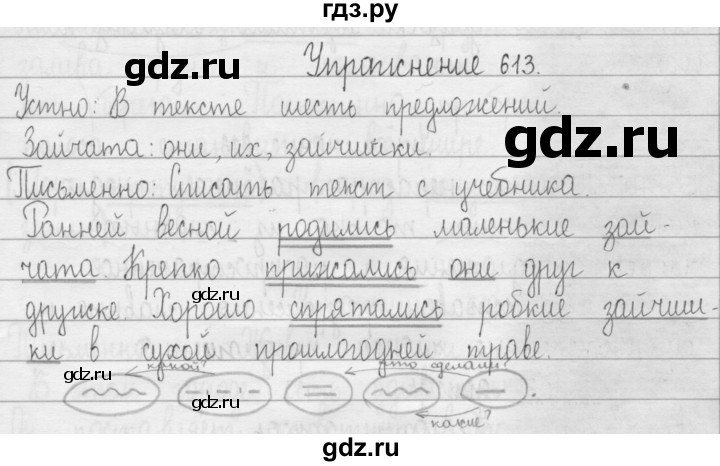 гдз.ру
Упражнение 613.
gdz.ru
gdz.ru
Устно: В тексте шесть предложений.
Зайчата: они, их, зайчишки.
gdz.ru
Письменно: Списать текст с учебника.
Ранней весной родились маленькие зай-
чата Крепко прижались они друг к
gdz.ru
дружке Хорошо спрятались робкие зайчиш-
ки в сухой прошлогодней траве.
gdz.ru
какой? что сделали?
gdz.ru
какие?
gdz.ru